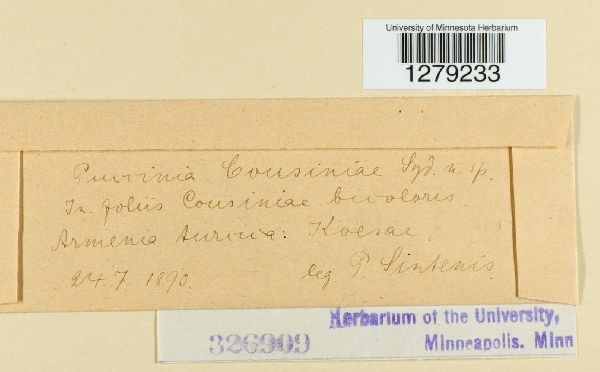 University of Minnesota Herbarium
1279233
Puccinia Cousiniae Syd. n. sp.
In foliis Cousiniae bicoloris.
Armenia turcica: Koesae.
24. 7. 1890. leg P. Sintenis.
326909
Herbarium of the University,
Minneapolis. Minn